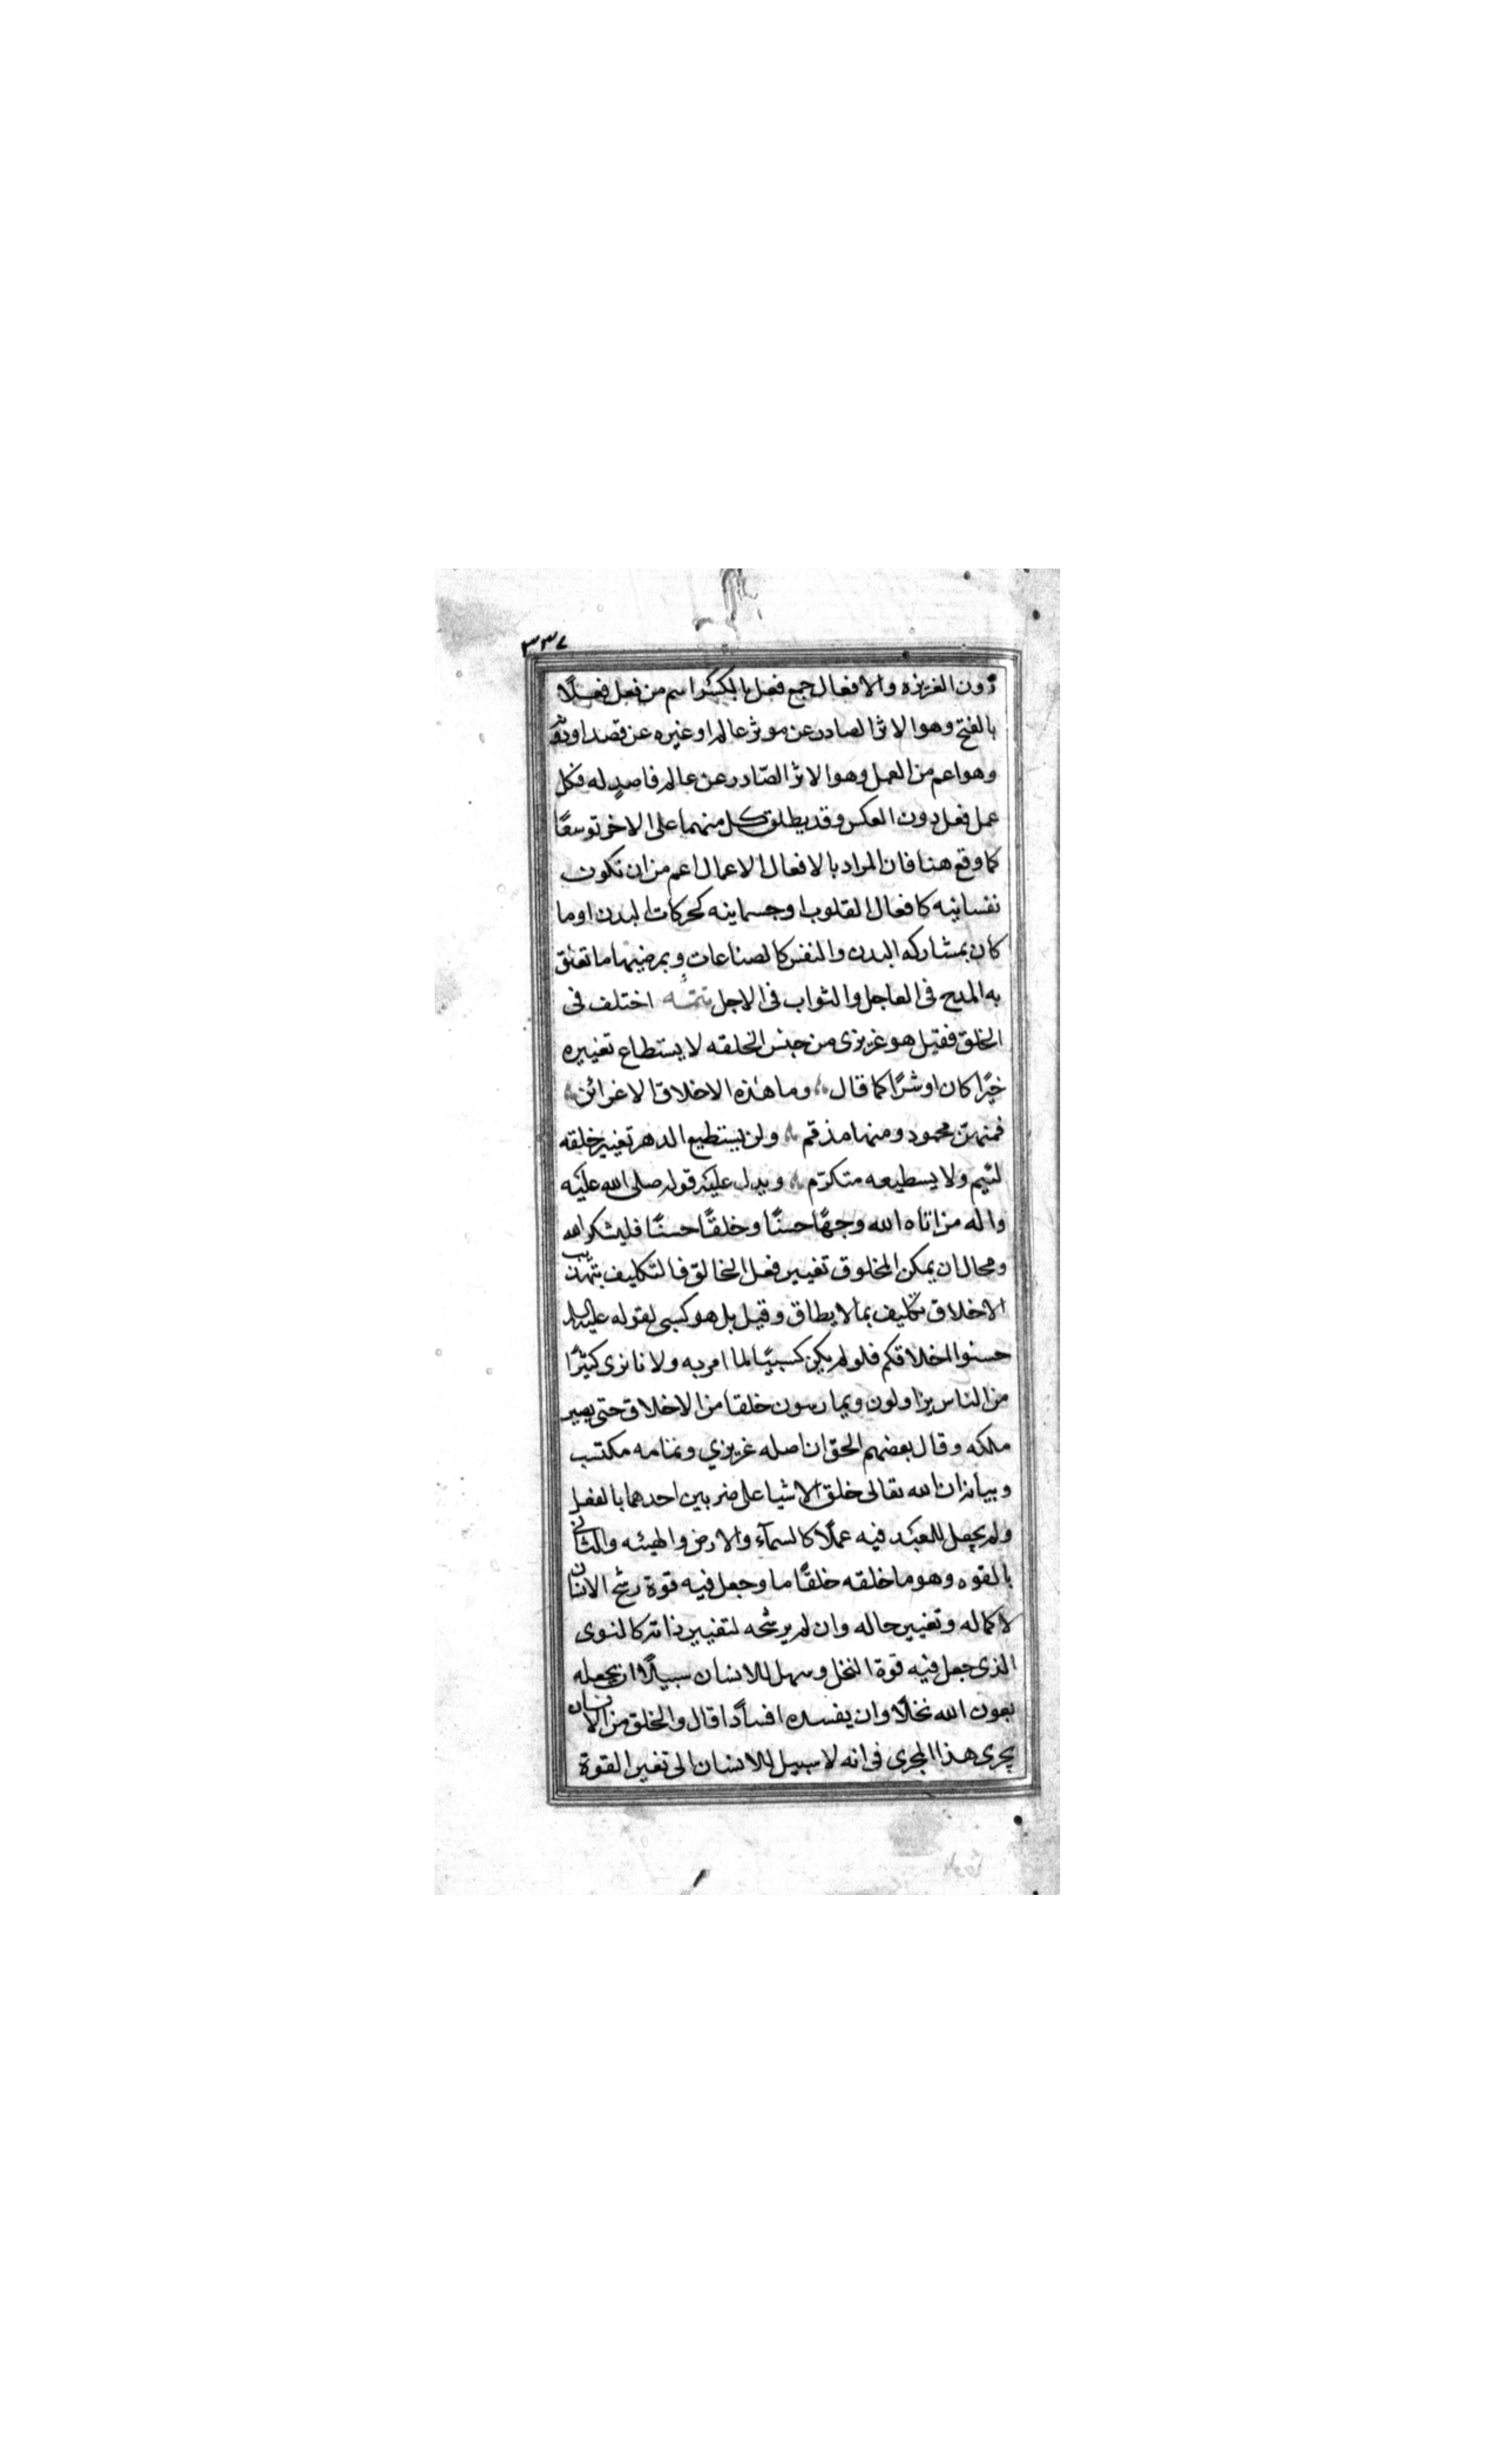 ٣٣٧
دون الغريزه والافعال جمع فعل بالكسر اسم من فعل فعلًا
بالفتح وهو الاثر الصادر عن موثر عالم او غيره عن قصد او دونه
وهو اعم من العمل وهو الاثر الصّادر عن عالم قاصدٍ له فكل
عمل فعل دون العكس وقد يطلق كل منهما على الاخر توسعًا
كما وقع هنا فان المراد بالافعال الاعمال اعم من ان تكون
نفسانيه كافعال القلوب او جسمانيه كحركات البدن او ما
كان بمشاركه البدن والنفس كالصناعات وبمرضيها ما تعلق
به المدح فى العاجل والثواب فى الاجل تتمّه اختلف فى
الخلق فقيل هو غريزى من جنس الخلقه لا يستطاع تغييره
خيرًا كان او شرًا كما قال وما هذه الاخلاق الا غرائز
فمنهنّ محمود ومنها مذمّم ولن يستطيع الدهر تغيير خلقه
لئيم ولا يسطيعه متكرّم ويدل عليه قوله صلى الله عليه
واله من اتاه الله وجهًا حسنًا وخلقًا حسنًا فليشكر الله
ومحال ان يمكن المخلوق تغيير فعل الخالق فالتكليف بتهذيب
الاخلاق تكليف بما لا يطاق وقيل بل هو كسبى لقوله عليه السلام
حسنوا اخلاقكم فلو لم يكن كسبيًا لما امر به ولانا نرى كثيرًا
من الناس يزاولون ويمارسون خلقا من الاخلاق حتى يصير
ملكه وقال بعضهم الحق ان اصله غريزي وتمامه مكتسب
وبيانه ان الله تعالى خلق الاشيا على ضربين احدهما بالفعل
ولم يجعل للعبد فيه عملًا كالسمآء والارض والهيئه والثانى
بالقوه وهو ما خلقه خلقًا ما وجعل فيه قوة رشح الانسان
لاكماله وتغيير حاله وان لم يرشحه لتغيير ذاته كالنوى
الذى جعل فيه قوة النخل وسهل للانسان سبيلًا ان يجعله
بعون الله نخلًا وان يفسده افسادًا قال والخلق من الانسان
يجرى هذا المجرى فى انه لا سبيل للانسان الى تغير القوة